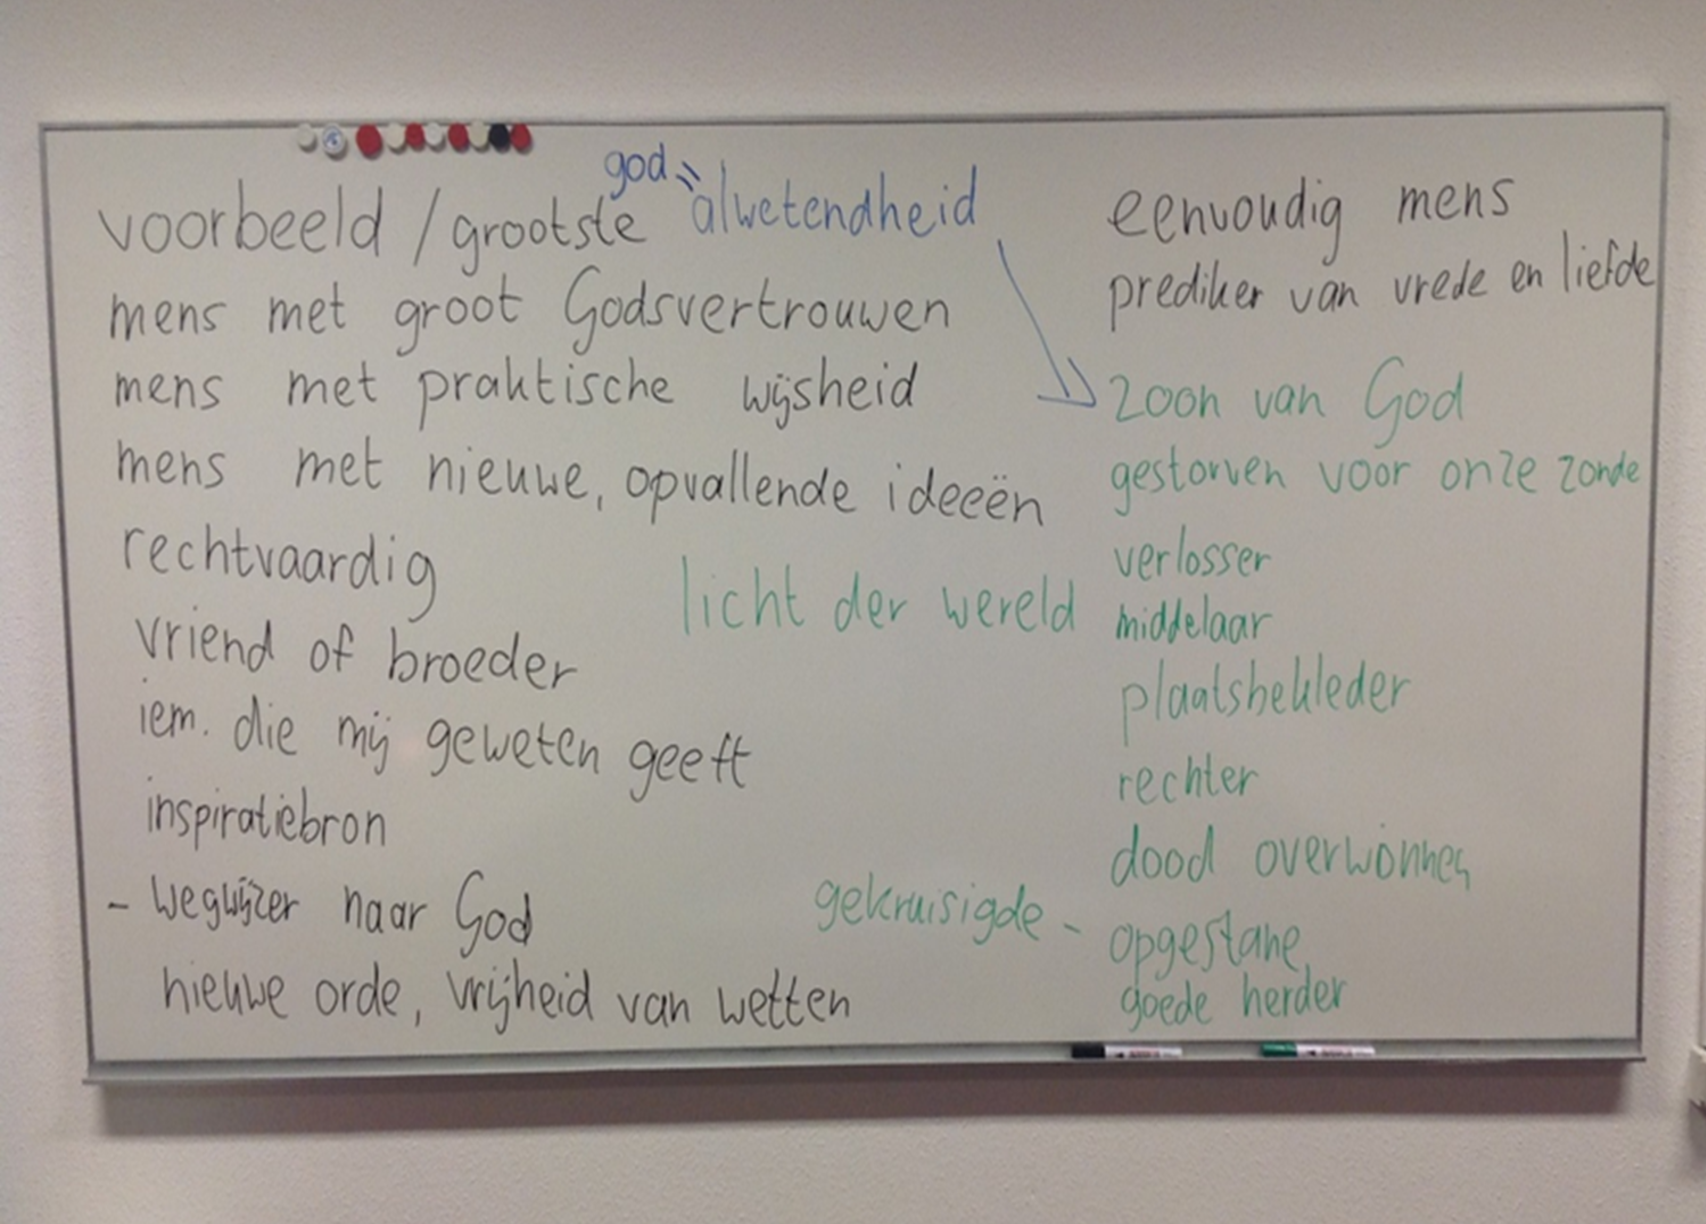 god = alwetendheid
voorbeeld / grootste
mens met groot Godsvertrouwen
mens met praktische wijsheid
mens met nieuwe, opvallende ideeën
rechtvaardig
vriend of broeder
iem. die mij geweten geeft
inspiratiebron
- wegwijzer naar God
nieuwe orde, vrijheid van wetten
licht der wereld
gekruisigde -
eenvoudig mens
prediker van vrede en liefde
zoon van God
gestorven voor onze zonde
verlosser
middelaar
plaatsbekleder
rechter
dood overwonnen
opgestane
goede herder